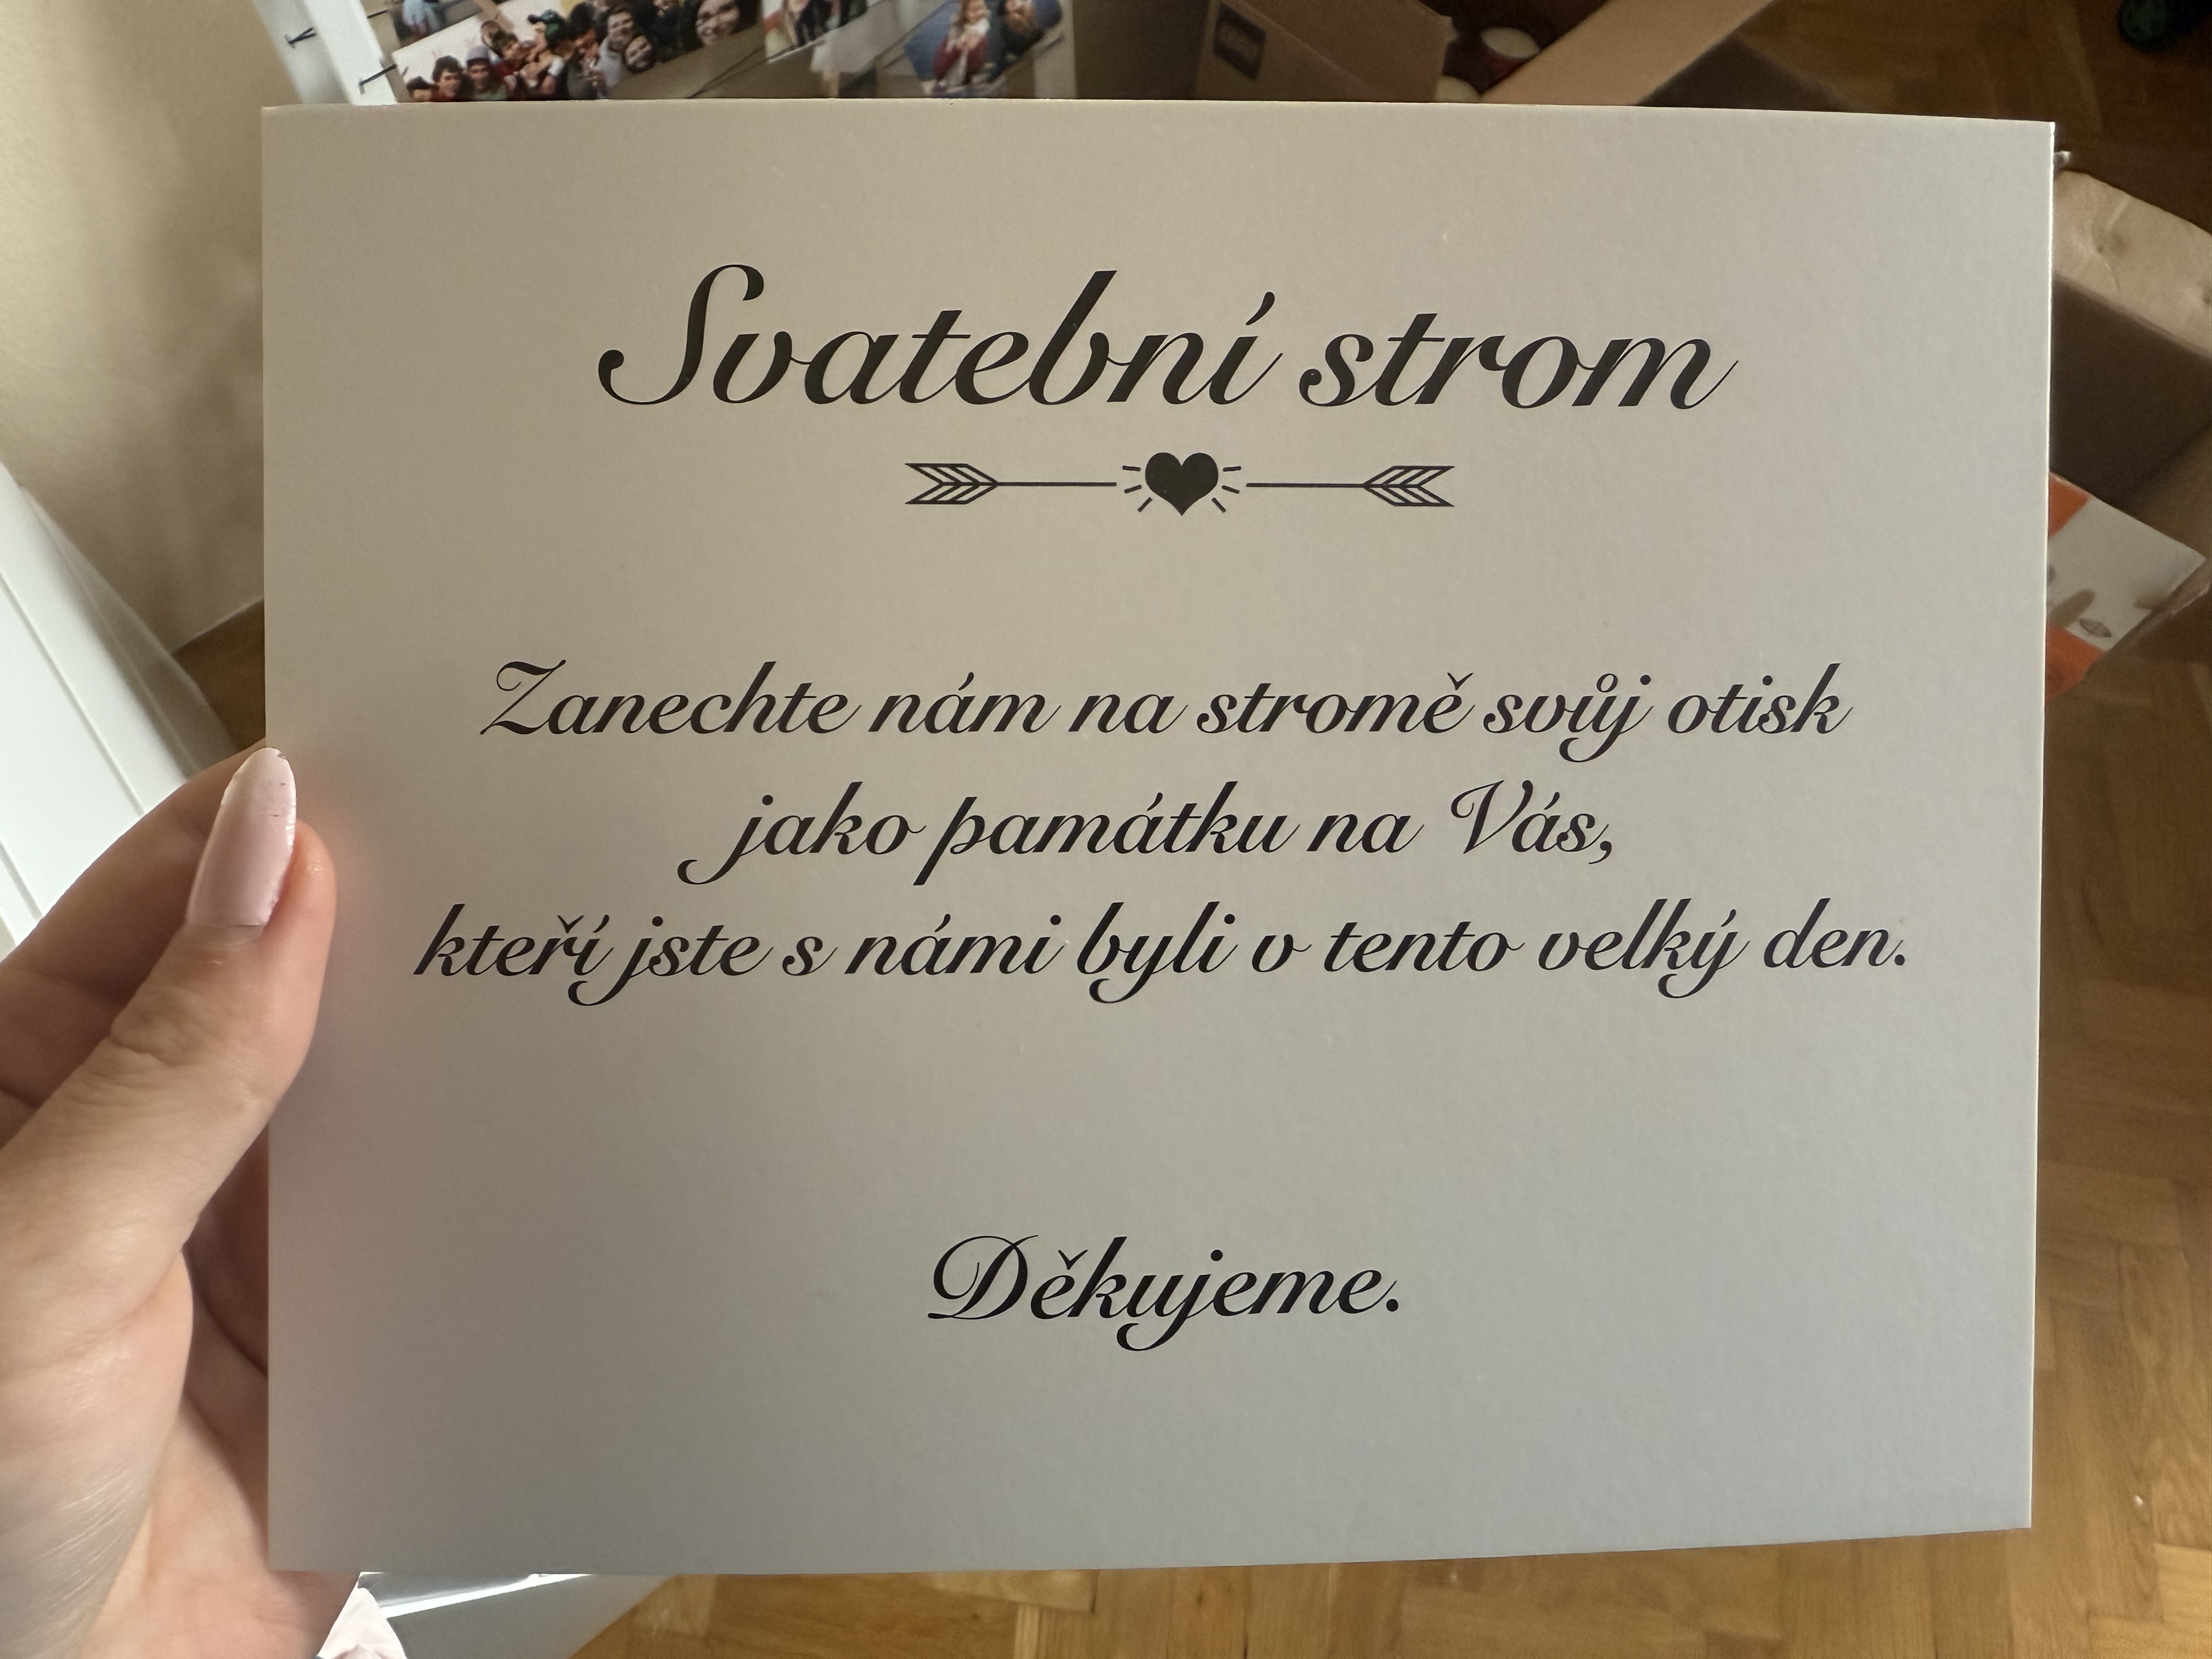 Svatební strom
Zanechte nám na stromě svůj otisk
jako památku na Vás,
kteří jste s námi byli v tento velký den.
Děkujeme.